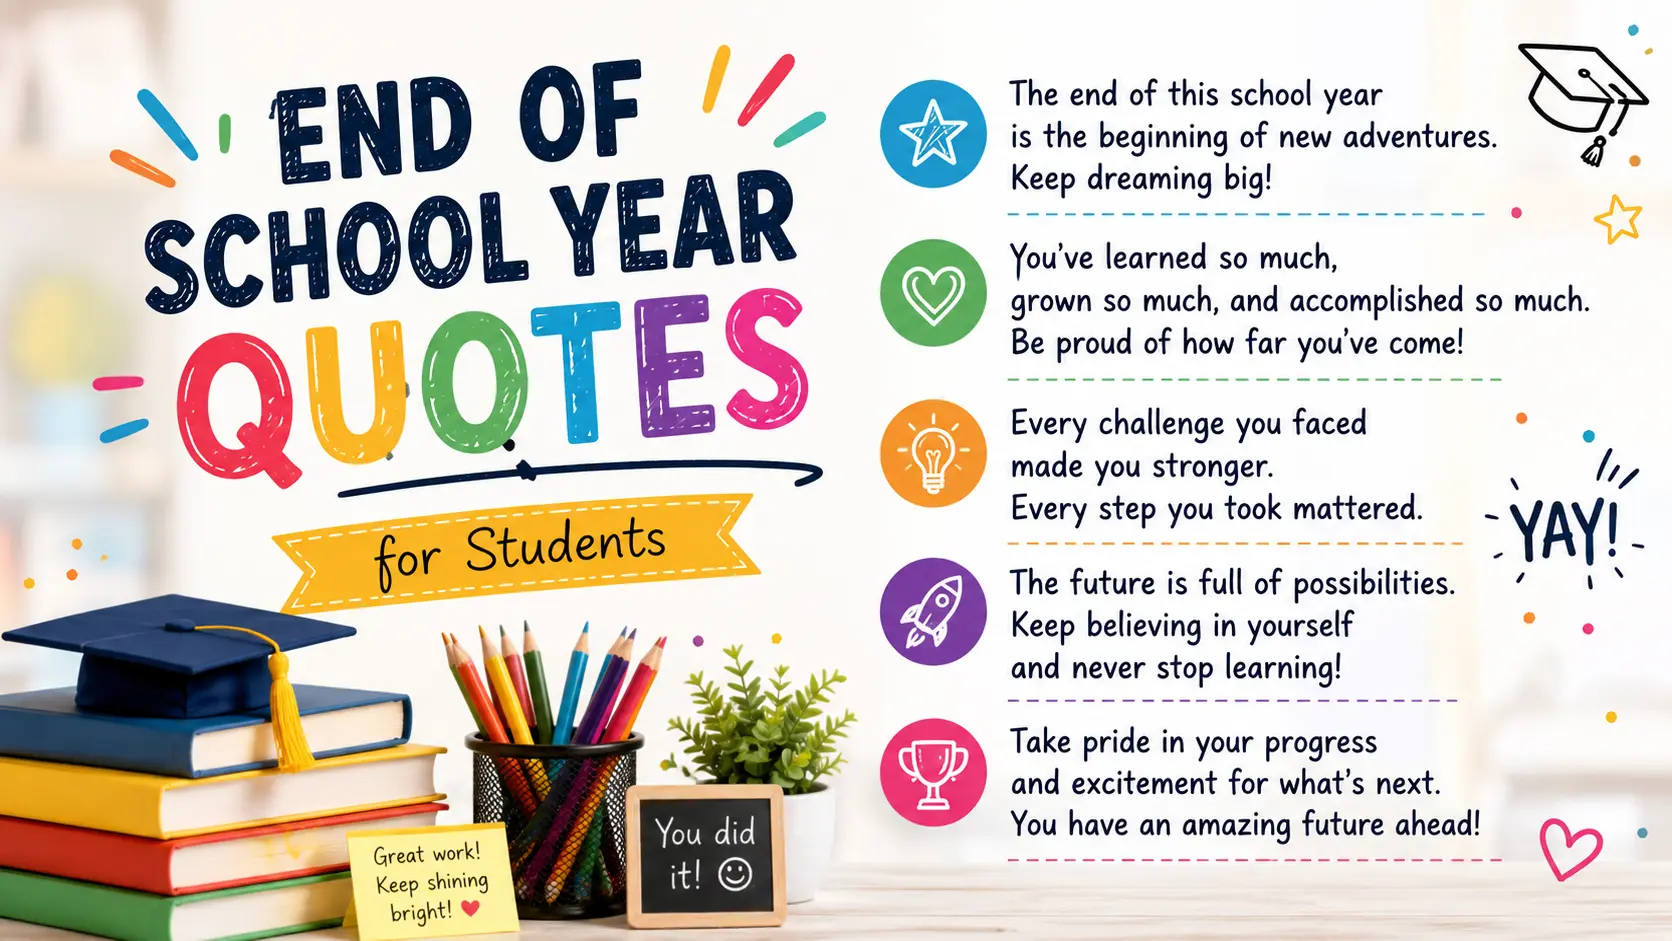 END OF
SCHOOL YEAR
QUOTES
for Students
The end of this school year
is the beginning of new adventures.
Keep dreaming big!
You've learned so much,
grown so much, and accomplished so much.
Be proud of how far you've come!
Every challenge you faced
made you stronger.
Every step you took mattered.
The future is full of possibilities.
Keep believing in yourself
and never stop learning!
Take pride in your progress
and excitement for what's next.
You have an amazing future ahead!
YAY!
Great work!
Keep shining
bright!
You did
it!